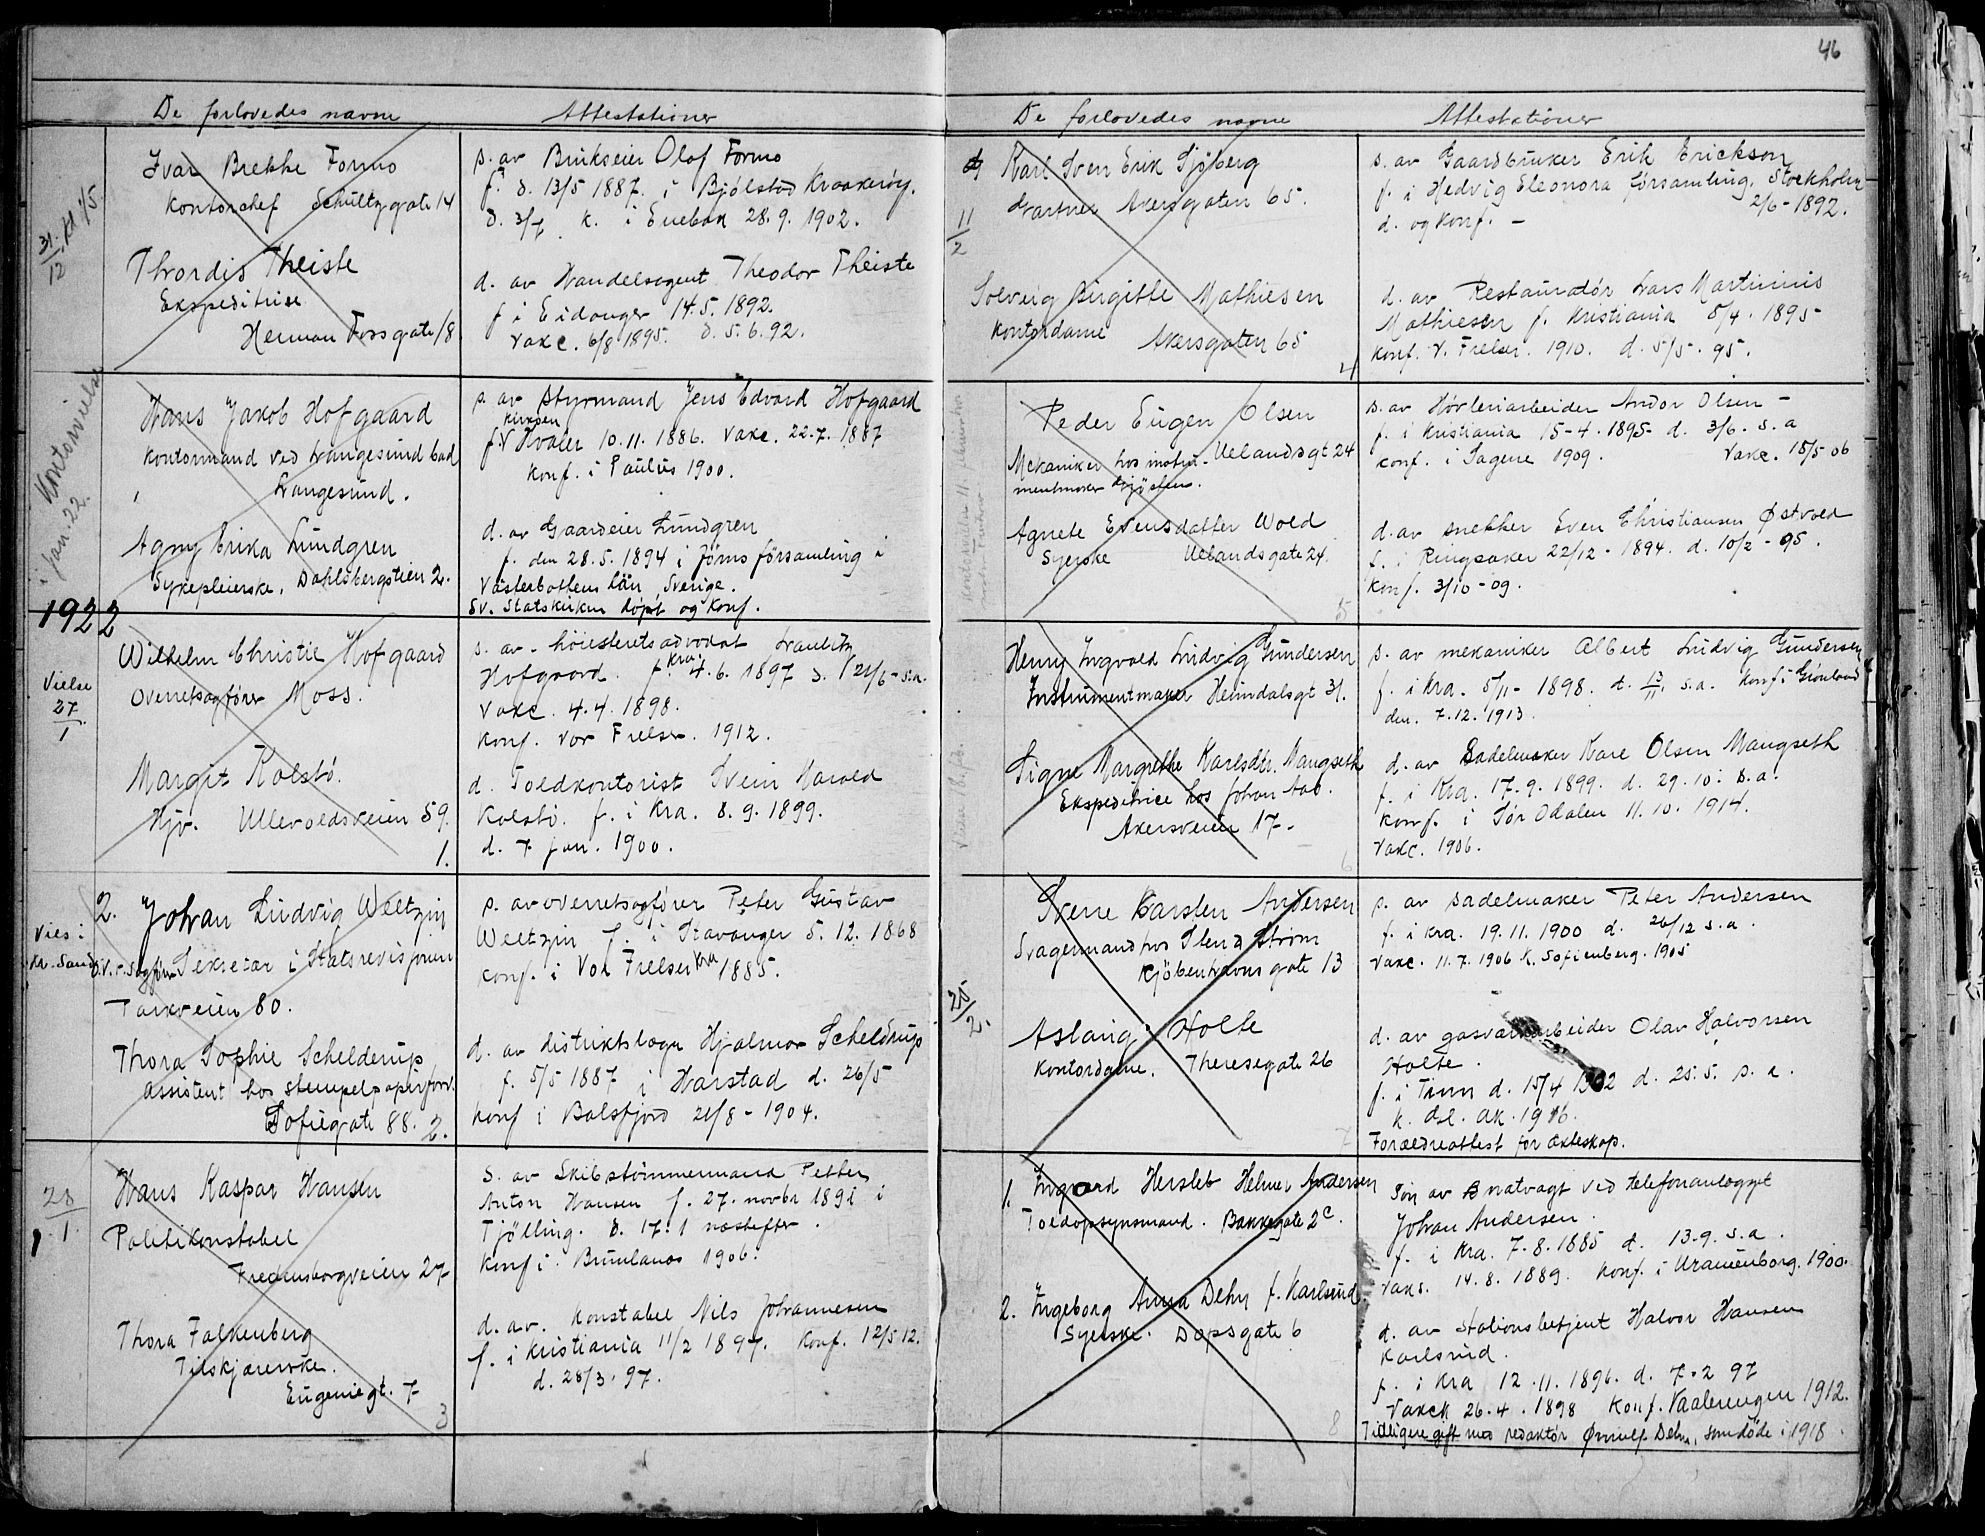 De forlovedes navne
Attestationer
31/12 Kl. 1/5.
Ivar Brekke Formo
Kontorchef Schultzgate 14
s. av Brukseier Olof Formo
f. d. 13/5 1887. i Bjølstad Kraakerøy.
d. 3/7 k. i Enebak 28.9. 1902.
Thordis Theiste
Ekspeditrise
Herman Fossgate 18
d. av Handelsagent Theodor Theiste
f i Eidanger 14.5. 1892.
Vakc. 6/8 1895. d. 5.6.92.
Kontorvielse
jan. 22.
Hans Jakob Hofgaard
Kontormand ved Langesund bad
Langesund.
s. av Styrmand Jens Edvard Hofgaard
f. Hvaler 10.11. 1886. Vakc. 22.7. 1887
Konf. i Paulus 1900.
Agny Erika Lundgren
Sykepleierske, Dahlsbergstien 2.
d. av Gaardeier Lundgren
f. den 28.5. 1894 i Jørns församling i
Västerbottens län, Sverige.
Sv. Statskirken døpt og Konf.
1922
Vielse
27/1
Wilhelm Christie Hofgaard
Overretssagfører Moss.
s. av. høiesteretsadvokat Laulitz
Hofgaard. f. Kra. 4.6. 1897 d. 21/6 - s.a.
Vakc. 4.4. 1898.
Konf. Vor Frelser. 1912.
Margit Kolstø.
Hjv. Ullevoldsveien 59.
1.
d. Toldkontorist Svein Harald
Kolstø. f. i Kra. 8.9. 1899.
d. 7 jan. 1900.
Vies i
Kr. Sand
2. Johan Ludvig Weltzin
O.r.sagfører Sekretær i Statsrevisjonen
Parkveien 80.
s. av overretssagfører Peter Gustav
Weltzin f. i Stavanger 5.12. 1868
Konf. i Vor Frelser Kra 1885.
Thora Sophie Schelderup
Assistent hos stempelpapirforv.
Sofiegate 88. 2.
d. av distriktslæge Hjalmar Scheldrup
f. 5/5 1887 i Harstad d. 26/5
Konf i Balsfjord 21/8 - 1904.
28/1.
Hans Kaspar Hansen
Politikonstabel
Fredensborgveien 27
s. av Skibstømmermand Petter
Anton Hansen f. 27. novbr 1891 i
Tjølling. d. 17.1 næstefter.
Konf i. Brunlanes 1906.
Thora Falkenberg
Tilskjærerske.
Eugeniegt. 7
3
d. av. Konstabel Nils Johannesen
f. i Kristiania 11/2 1897. Konf. 12/5 12.
d. 28/3. 97.
46
De forlovedes navne
Attestationer
11/2
Karl Sven Erik Sjøberg
Gartner Akersgaten 65.
s. av Gaardbruker Erik Erickson
f. i Hedvig Eleonora församling, Stockholm
2/6 - 1892.
d. og konf. -
Solveig Birgitte Mathiesen
Kontordame Akersgaten 65
4
d. av Restauratør Lars Martinius
Mathiesen f. Kristiania 5/4. 1895
Konf. V. Frelser. 1910. d. 5/5. 95.
Peder Eugen Olsen
Mekaniker hos instru- Uelandsgt 24
mentmaker
s. av Høvleriarbeider Andor Olsen -
f. i Kristiania 15-4. 1895 d. 3/6. s.a
Konf. i Sagene 1909. Vakc. 15/5 06
Agnete Evensdatter Wold
Syerske Uelandsgate 24.
5
d. av snekker Even Christiansen Østvold
f. i Ringsaker 22/12 - 1894. d. 10/2 - 95.
Konf. 3/10 - 09.
Henry Ingvald Ludvig Gundersen
Instrumentmaker Heimdalsgt 31.
s. av mekaniker Albert Ludvig Gundersen
f. i Kra. 5/11 - 1898. d. 13/11 s.a. Konf i Grønland
den. 7.12. 1913.
Signe Margrethe Karlsdtr. Mangseth
Ekspeditrice hos Johan
Akersveien 17.
6
d. av Sadelmaker Karl Olsen Mangseth
f. i Kra. 17.9. 1899. d. 29.10. s.a.
Konf. i Sør Odalen 11.10. 1914.
Vakc. 1906.
25/2.
Sverre Karsten Andersen
Lagermand hos Steen & Strøm
Kjøbenhavns gate 13
s. av Sadelmaker Peter Andersen
f. i Kra. 19.11. 1900 d. 26/12 s.a.
Vakc. 11.7. 1906 K. Sofienberg. 1905
Aslaug Holte
Kontordame. Theresegate 26
7
d. av gasverkarbeider Olav Halvorsen
Holte.
f. i Tinn d. 15/4 1902 d. 25.5. s.a.
k. Gl. Ak. 1916.
Forældreattest for ækteskap.
1. Ingvard Hersleb Helmer Andersen
Toldopsynsmand. Bakkegate 2c.
Søn av Bratvagt ved telefonanlægget
Johan Andersen.
f. i Kra. 7.8. 1885 d. 13.9. s.a.
Vaks. 14.8. 1889. Konf. i Uranienborg. 1900.
2. Ingeborg Anna Dehn f. Karlsrud.
Syerske. Dopsgate 6
8
d. av Stationsbetjent Halvor Hansen
Karlsrud.
f. i Kra 12.11. 1896. d. 7.2 97
Vakc. 26.4. 1898 Konf. Vaalerengen 1912.
Tidligere gift med redaktør Ørnulf Dehn, som døde i 1918.